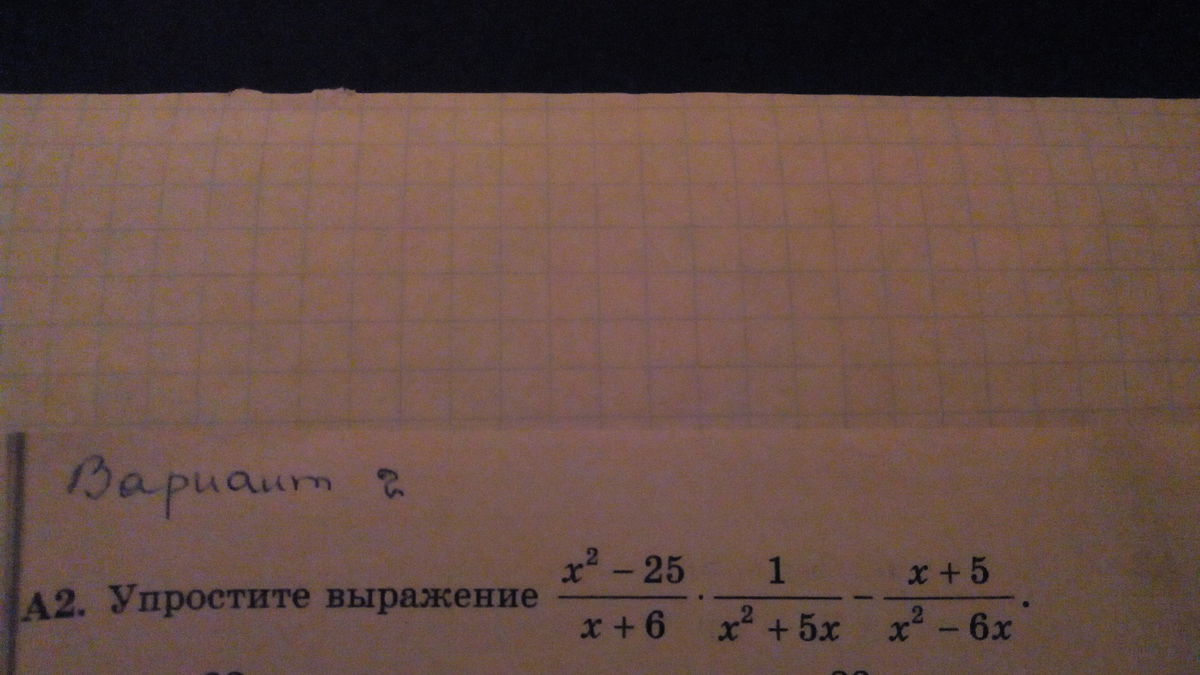 Вариант 2
А2. Упростите выражение \frac{x^2 - 25}{x + 6} \cdot \frac{1}{x^2 + 5x} - \frac{x + 5}{x^2 - 6x}.